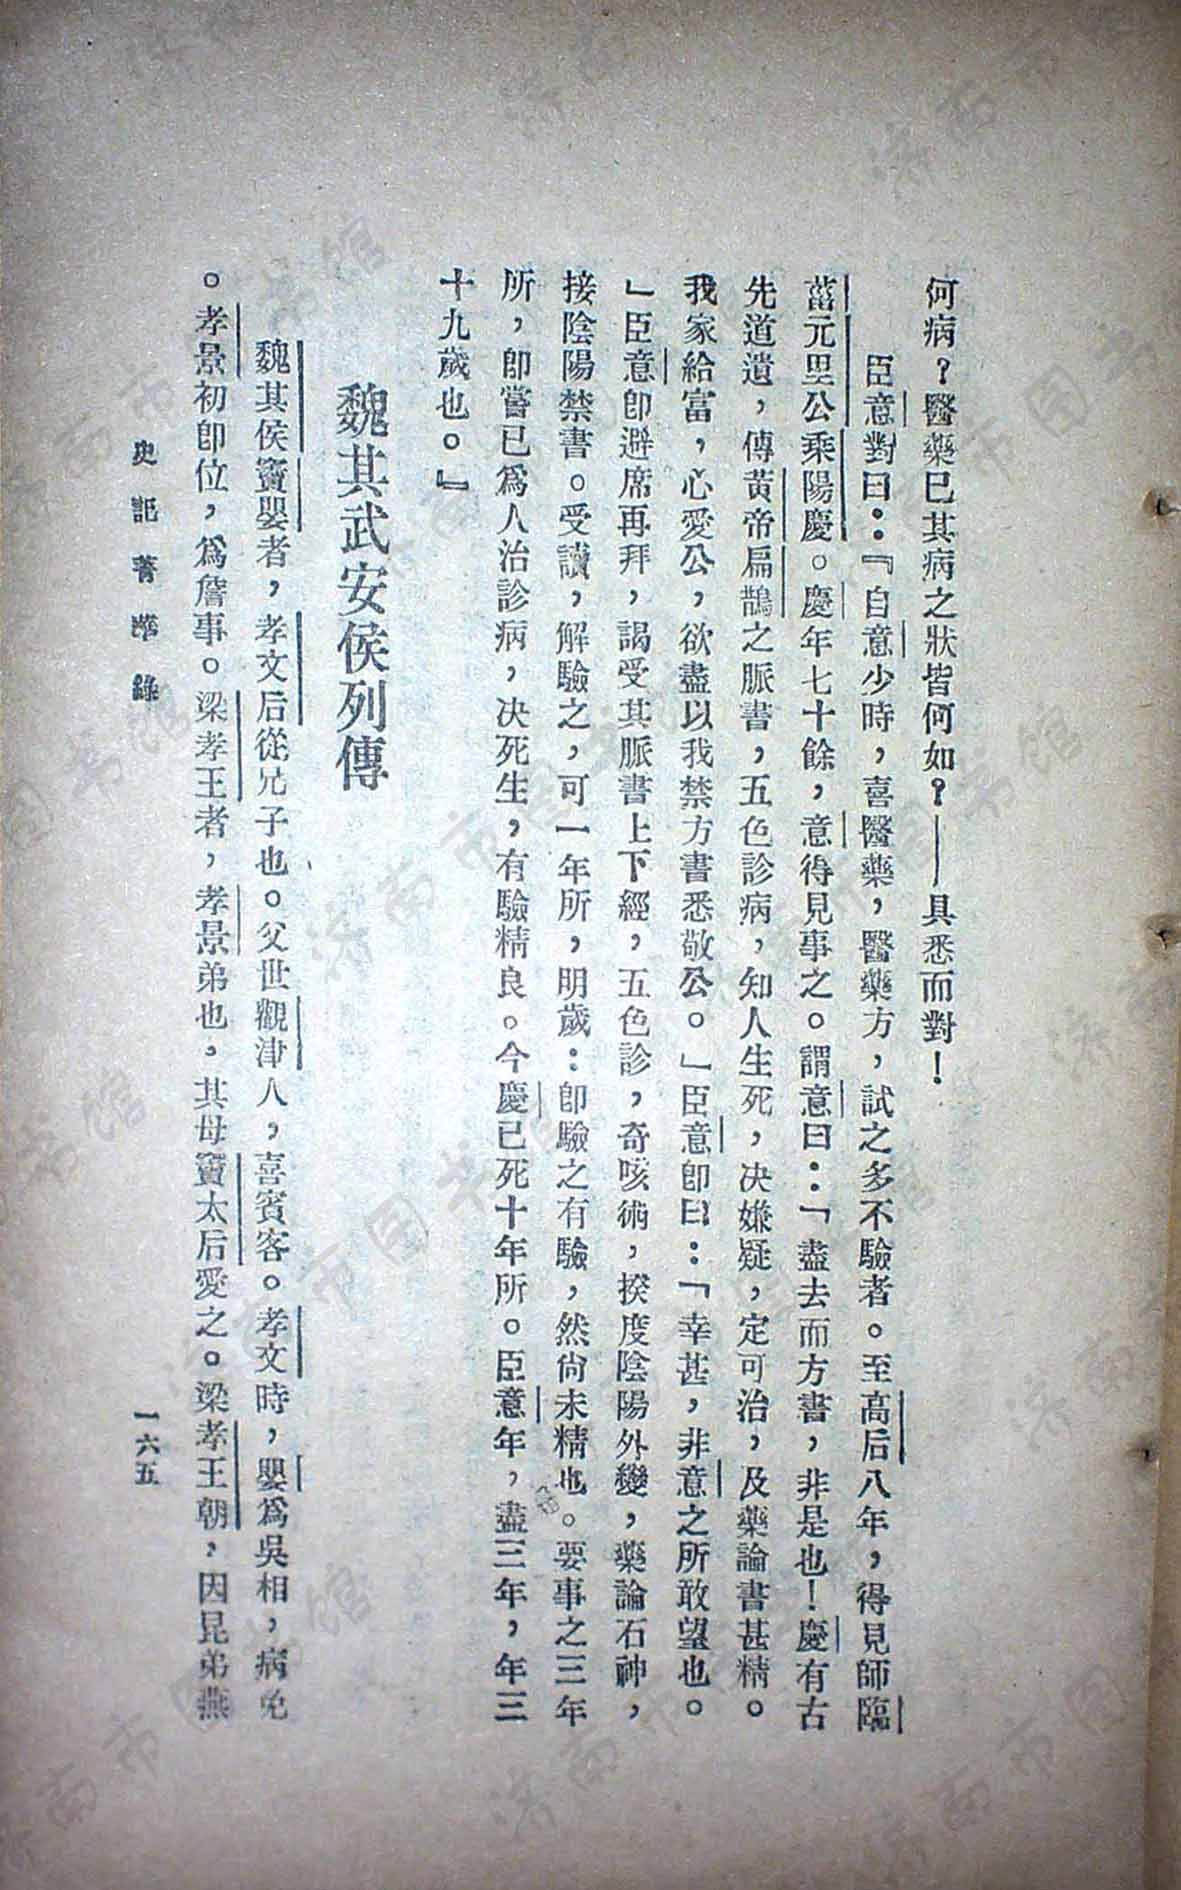 何病？醫藥已其病之狀皆何如？——具悉而對！
臣意對曰：『自意少時，喜醫藥，醫藥方，試之多不驗者。至高后八年，得見師臨
菑元里公乘陽慶。慶年七十餘，意得見事之。謂意曰：「盡去而方書，非是也！慶有古
先道遺，傳黃帝扁鵲之脈書，五色診病，知人生死，决嫌疑，定可治，及藥論書甚精。
我家給富，心愛公，欲盡以我禁方書悉敬公。」臣意卽曰：「幸甚，非意之所敢望也。
」臣意卽避席再拜，謁受其脈書上下經，五色診，奇咳術，揆度陰陽外變，藥論石神，
接陰陽禁書。受讀，解驗之，可一年所，明歲：卽驗之有驗，然尙未精也。要事之三年
所，卽嘗已爲人治診病，决死生，有驗精良。今慶已死十年所。臣意年，盡三年，年三
十九歲也。』
魏其武安侯列傳
魏其侯竇嬰者，孝文后從兄子也。父世觀津人，喜賓客。孝文時，嬰爲吳相，病免
。孝景初卽位，爲詹事。梁孝王者，孝景弟也，其母竇太后愛之。梁孝王朝，因昆弟燕
史記菁華錄
一六五
济南市图书馆